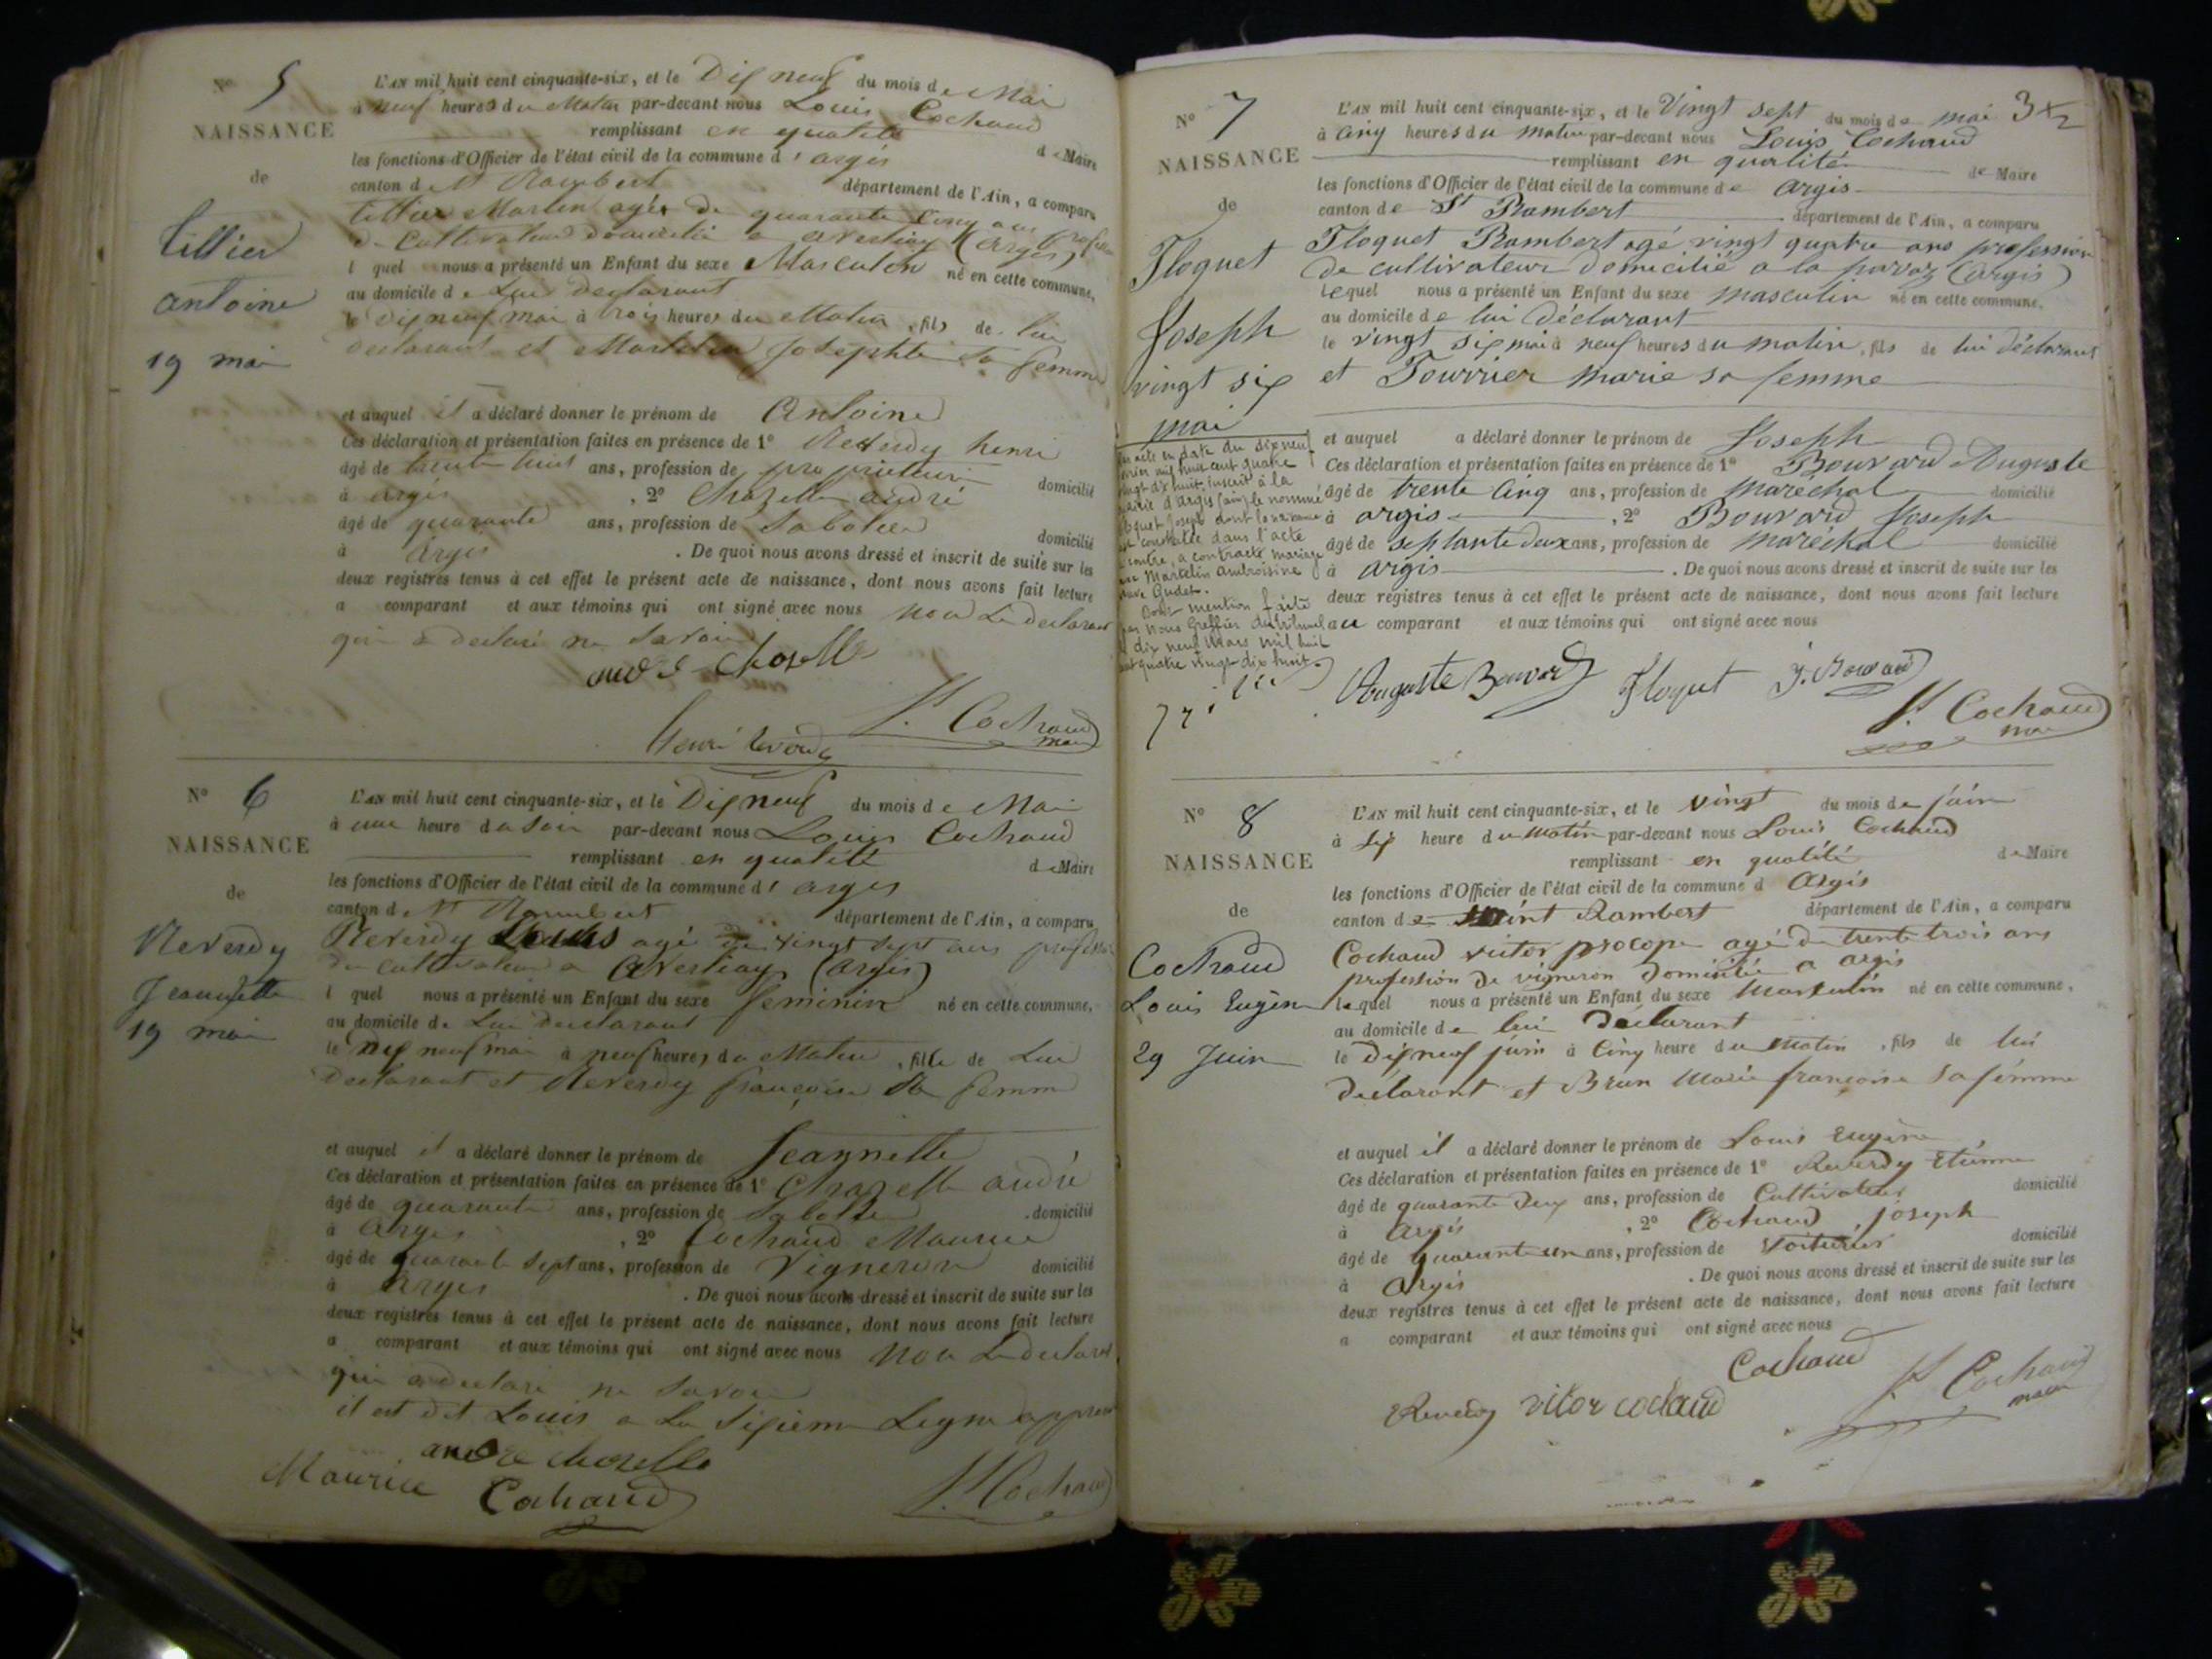 N° 5
NAISSANCE
de
Tillier
antoine
19 mai
L'AN mil huit cent cinquante-six, et le Dix neuf du mois de Mai
à neuf heures du Matin par-devant nous Louis Cochaud
remplissant en qualité de Maire
les fonctions d'Officier de l'état civil de la commune d'argis
canton de St Rambert département de l'Ain, a comparu
Tillier Martin agés de quarante cinq ans
de Cultivateur domicilié a averliaz (argis)
lquel nous a présenté un Enfant du sexe Masculin né en cette commune,
au domicile de Lui Déclarant
le Dix neuf mai à trois heures du Matin, fils de lui
declarant et Josephte Sa femme
et auquel il a déclaré donner le prénom de Antoine
Ces déclaration et présentation faites en présence de 1° Reverdy henri
âgé de trente huit ans, profession de domicilié
à argis, 2° Chazelle andré
âgé de quarante ans, profession de Sabotier domicilié
à Argis. De quoi nous avons dressé et inscrit de suite sur les
deux registres tenus à cet effet le présent acte de naissance, dont nous avons fait lecture
a comparant et aux témoins qui ont signé avec nous non Le declarant
qui a declaré ne Savoir
Lt Cochaud
maire
N° 6
NAISSANCE
de
Reverdy
Jeannette
19 mai
L'AN mil huit cent cinquante-six, et le Dix neuf du mois de Mai
à une heure du Soir par-devant nous Louis Cochaud
remplissant en qualité de Maire
les fonctions d'Officier de l'état civil de la commune d'argis
canton de St Rambert département de l'Ain, a comparu
Reverdy Louis agé de vingt Sept ans
de Cultivateur a Averliaz (argis)
lquel nous a présenté un Enfant du sexe feminin né en cette commune,
au domicile de Lui declarant
le Dix neuf mai à neuf heures du Matin, fille de Lui
Declarant et Reverdy françoise Sa femme
et auquel il a déclaré donner le prénom de Jeannette
Ces déclaration et présentation faites en présence de 1° Chazelle andré
âgé de quarante ans, profession de Sabotier domicilié
à Argis, 2° Cochaud Maurice
âgé de quarante Sept ans, profession de Vigneron domicilié
à Argis. De quoi nous avons dressé et inscrit de suite sur les
deux registres tenus à cet effet le présent acte de naissance, dont nous avons fait lecture
a comparant et aux témoins qui ont signé avec nous non Le declarant
qui a declaré ne Savoir
il est dit Louis a La Sixiem Ligne
andre chazelle
Maurice Cochaud
Lt Cochaud
3
N° 7
NAISSANCE
de
Floquet
Joseph
vingt six
mai
L'AN mil huit cent cinquante-six, et le Vingt sept du mois de mai
à cinq heures du matin par-devant nous Louis Cochaud
remplissant en qualité de Maire
les fonctions d'Officier de l'état civil de la commune de Argis
canton de St Rambert département de l'Ain, a comparu
Floquet Rambert agé vingt quatre ans profession
de cultivateur domicilié a la (argis)
Lequel nous a présenté un Enfant du sexe masculin né en cette commune,
au domicile de lui Déclarant
le vingt six mai à neuf heures du matin, fils de lui déclarant
et Fourrier marie sa femme
et auquel a déclaré donner le prénom de Joseph
Ces déclaration et présentation faites en présence de 1° Bouvard Auguste
âgé de trente cinq ans, profession de maréchal domicilié
à argis, 2° Bouvard Joseph
âgé de septante deux ans, profession de maréchal domicilié
à argis. De quoi nous avons dressé et inscrit de suite sur les
deux registres tenus à cet effet le présent acte de naissance, dont nous avons fait lecture
au comparant et aux témoins qui ont signé avec nous
acte en date du dix neuf
mil huit cent quatre
vingt dix huit, inscrit à la
mairie d'Argis (ain) le nommé
Floquet Joseph dont la naissance
est constatée dans l'acte
ci contre, a contracté mariage
avec Martelin Ambroisine
veuve Gudet.
Dont mention faite
par Nous Greffier du tribunal
le dix neuf Mars mil huit
cent quatre vingt dix huit.
Auguste Bouvard Floquet J. Bouvard
Lt Cochaud
N° 8
NAISSANCE
de
Cochaud
Louis Eugène
29 Juin
L'AN mil huit cent cinquante-six, et le vingt du mois de juin
à six heure du matin par-devant nous Louis Cochaud
remplissant en qualité de Maire
les fonctions d'Officier de l'état civil de la commune d Argis
canton de Saint Rambert département de l'Ain, a comparu
Cochaud victor procope agé de trente trois ans
profession de vigneron Domicilié a argis
lequel nous a présenté un Enfant du sexe Maskulin né en cette commune,
au domicile de lui Déclarant
le dix neuf juin à Cinq heure du matin, fils de lui
déclarant et Brun Marie françoise sa femme
et auquel il a déclaré donner le prénom de Louis Eugène
Ces déclaration et présentation faites en présence de 1° Reverdy Etienne
âgé de quarante deux ans, profession de Cultivateur domicilié
à Argis, 2° Cochaud Joseph
âgé de quarante un ans, profession de Voiturier domicilié
à Argis. De quoi nous avons dressé et inscrit de suite sur les
deux registres tenus à cet effet le présent acte de naissance, dont nous avons fait lecture
a comparant et aux témoins qui ont signé avec nous
Cochaud
Reverdy vitor cochaud
Lt Cochaud
maire